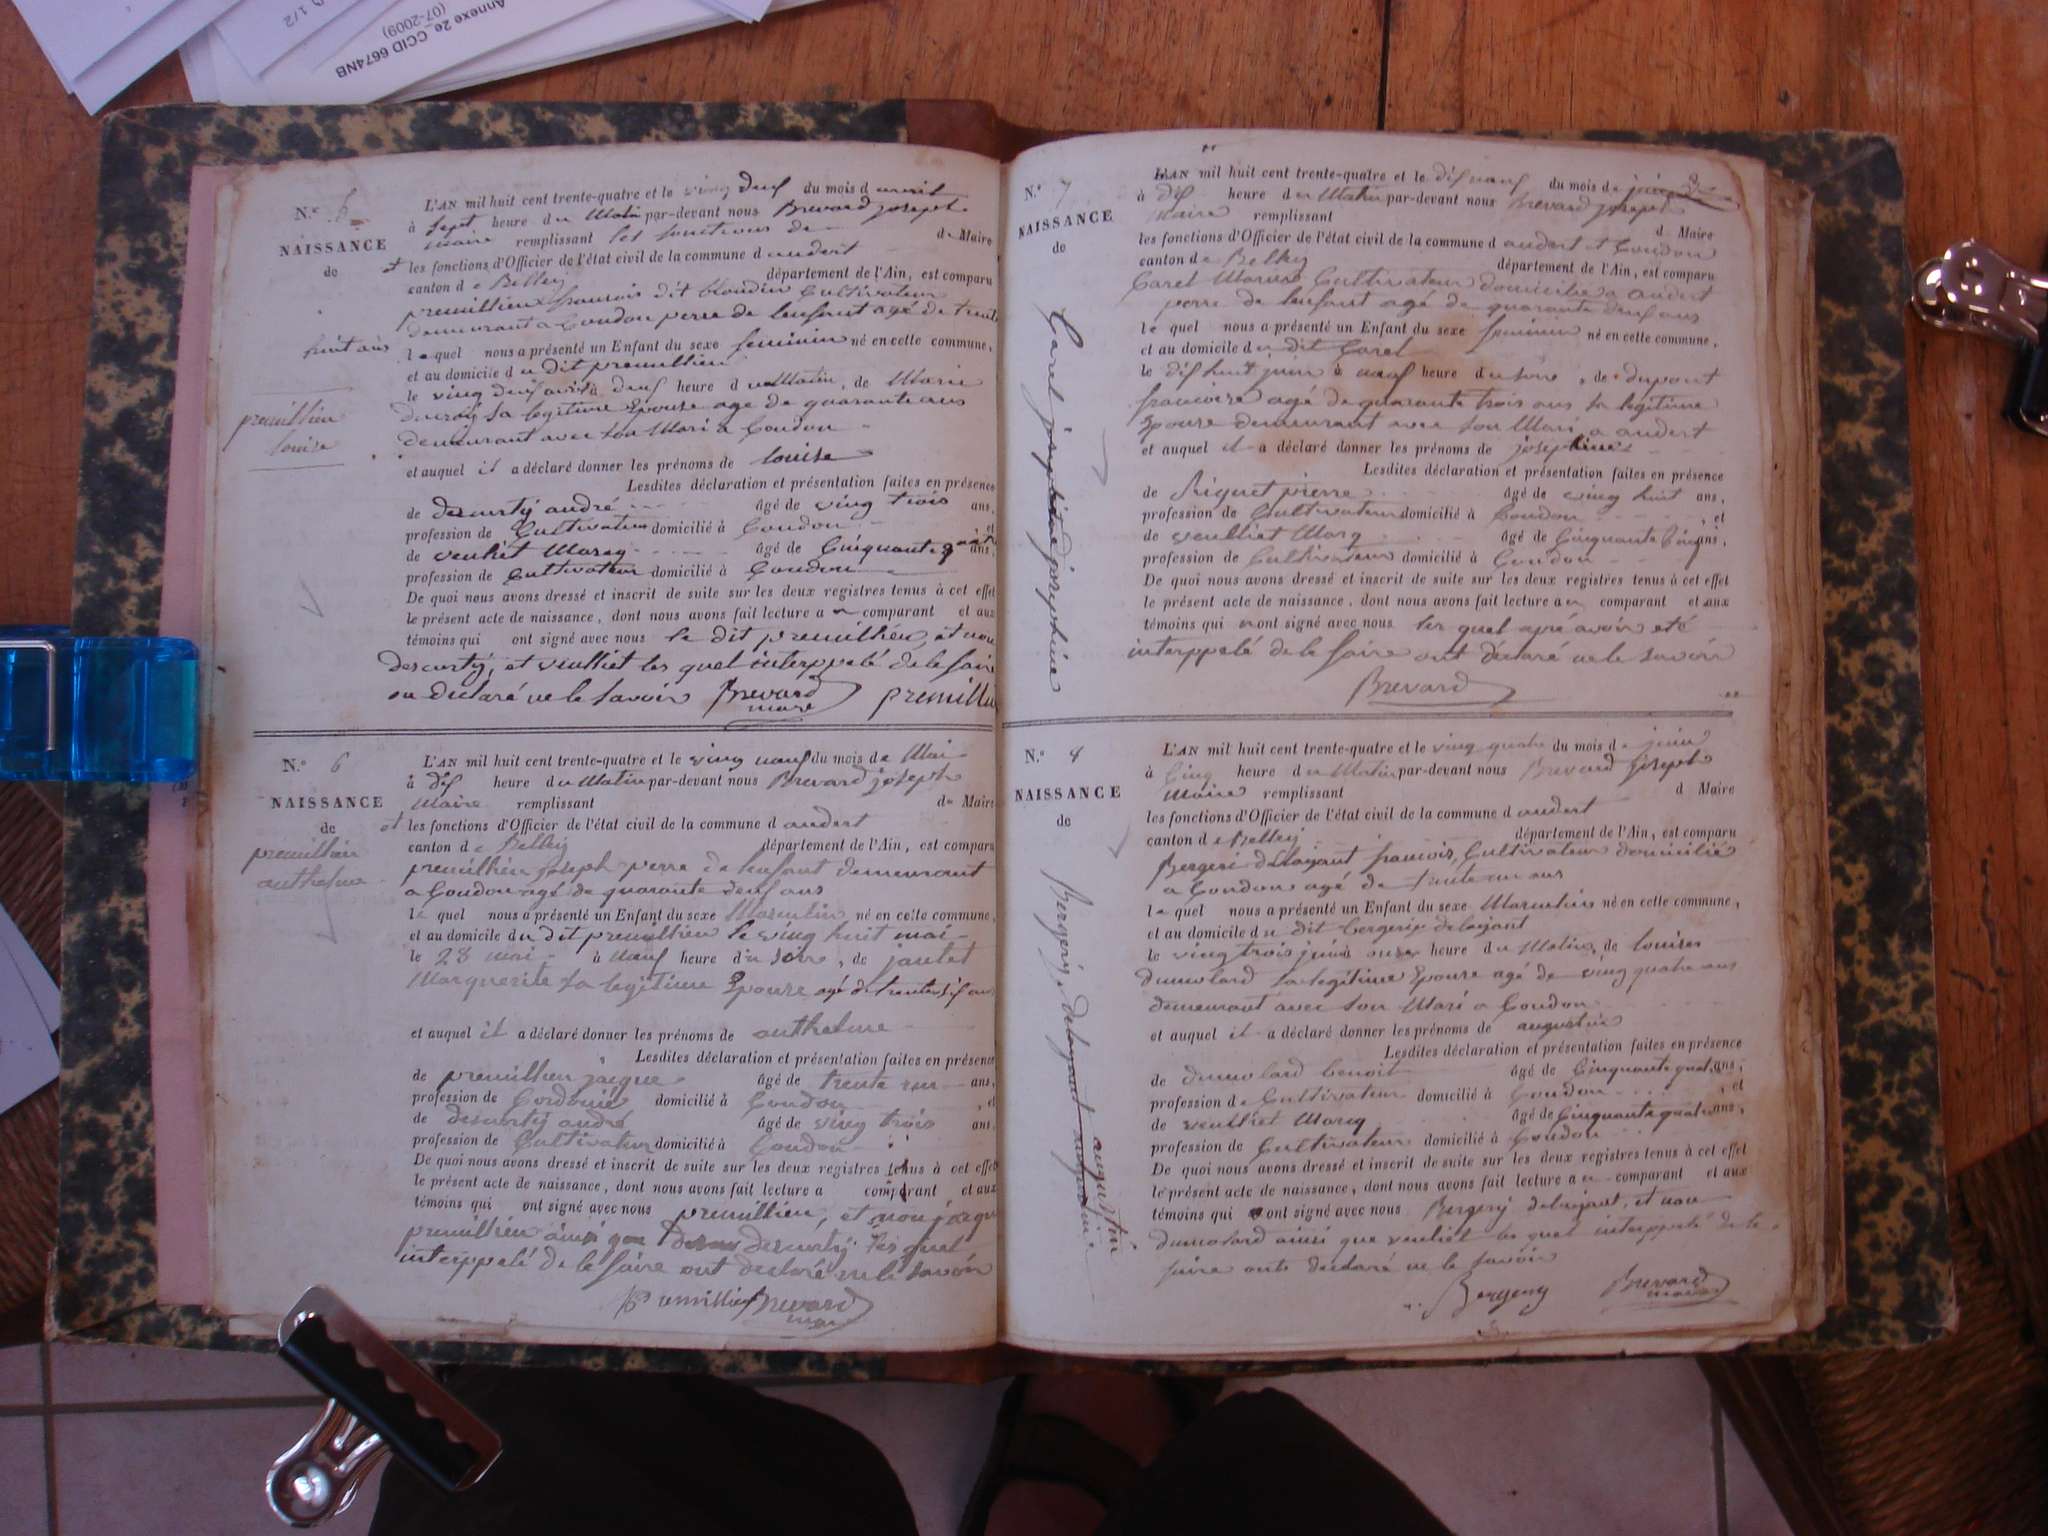 Annexe 2e CCID 6674NB
(07-2009)
1/2
N.o
NAISSANCE
de
huit ans
premillieu
louise
L'AN mil huit cent trente-quatre et le ving deuf du mois d avril
à sept heure du Matin par-devant nous Brevard joseph
maire remplissant les fonctions de d Maire
et les fonctions d'Officier de l'état civil de la commune d andert
canton de Belley département de l'Ain, est comparu
premillieux francois dit blondin Cultivateur
demeurant a Coudon perre de lenfant agé de trente
le quel nous a présenté un Enfant du sexe feminin né en cette commune,
et au domicile du dit premillieu
le ving deuf avril à deuf heure du Matin, de Marie
sa legitime Epouse age de quarante ans
demeurant avec son Mari a Coudon
et auquel il a déclaré donner les prénoms de louise
Lesdites déclaration et présentation faites en présence
de descurty andré âgé de ving trois ans,
profession de Cultivateur domicilié à Coudon et
de veuliet Marcq âgé de Cinquante quatre ans,
profession de Cultivateur domicilié à Coudon
De quoi nous avons dressé et inscrit de suite sur les deux registres tenus à cet effet
le présent acte de naissance, dont nous avons fait lecture au comparant et aux
témoins qui ont signé avec nous le dit premillieu, et non
descurty, et veulliet les quel interppelé de le faire
on déclaré ne le savoir Brevard premillieu
maire
N.o 6
NAISSANCE
de
premillieu
anthelme
L'AN mil huit cent trente-quatre et le ving neuf du mois de Mai
à dif heure du Matin par-devant nous Brevard joseph
Maire remplissant de Maire
et les fonctions d'Officier de l'état civil de la commune d andert
canton de Belley département de l'Ain, est comparu
premillieu joseph perre de lenfant demeurant
a Coudon agé de quarante deuf ans
le quel nous a présenté un Enfant du sexe Masculin né en cette commune,
et au domicile du dit premillieu le ving huit mai
le 28 mai à neuf heure du soire, de jantet
Marguerite sa legitime Epouse agé de trente sif ans
et auquel il a déclaré donner les prénoms de anthelme
Lesdites déclaration et présentation faites en présence
de premillieu jacque âgé de trente ans,
profession de Cordonié domicilié à Coudon, et
de descurty andré âgé de ving trois ans,
profession de Cultivateur domicilié à Coudon
De quoi nous avons dressé et inscrit de suite sur les deux registres tenus à cet effet
le présent acte de naissance, dont nous avons fait lecture a comparant et aux
témoins qui ont signé avec nous premillieu, et non jacque
premillieu ainsi que descurty les quel
interppelé de le faire ont declaré ne le savoir
Premillieu Brevard
maire
N.o 7
NAISSANCE
de
Carel josephine
L'AN mil huit cent trente-quatre et le dif neuf du mois de juin
à dif heure du Matin par-devant nous Brevard joseph
Maire remplissant d Maire
les fonctions d'Officier de l'état civil de la commune d andert et Coudon
canton de Belley département de l'Ain, est comparu
Carel Cultivateur domicilié a andert
perre de lenfant agé de quarante deuf ans
le quel nous a présenté un Enfant du sexe feminin né en cette commune,
et au domicile du dit Carel
le dif huit juin à neuf heure du soire, de dupont
francoise agé de quarante trois ans sa legitime
Epouse demeurant avec son Mari a andert
et auquel il a déclaré donner les prénoms de josephine
Lesdites déclaration et présentation faites en présence
de Riquet pierre âgé de ving huit ans,
profession de Cultivateur domicilié à Coudon, et
de veulliet Marcq âgé de Cinquante ans,
profession de Cultivateur domicilié à Coudon
De quoi nous avons dressé et inscrit de suite sur les deux registres tenus à cet effet
le présent acte de naissance, dont nous avons fait lecture au comparant et aux
témoins qui nont signé avec nous les quel apré avoir eté
interppelé de le faire ont declaré ne le savoir
Brevard
N.o 8
NAISSANCE
de
Bergery delayant augustin
augustin
L'AN mil huit cent trente-quatre et le ving quatre du mois de juin
à Cinq heure du Matin par-devant nous Brevard joseph
Maire remplissant d Maire
les fonctions d'Officier de l'état civil de la commune d andert
canton de Belley département de l'Ain, est comparu
Bergeri delayant francois, Cultivateur domicilié
a Coudon agé de trente un ans
le quel nous a présenté un Enfant du sexe Masculin né en cette commune,
et au domicile du dit bergerie delayant
le ving trois juin à onse heure du Matin, de louise
dumolard sa legitime Epouse agé de ving quatre ans
demeurant avec son Mari a Coudon
et auquel il a déclaré donner les prénoms de augustin
Lesdites déclaration et présentation faites en présence
de dumolard benoit âgé de Cinquante quatre ans,
profession de Cultivateur domicilié à Coudon, et
de veulliet Marcq âgé de Cinquante quatre ans,
profession de Cultivateur domicilié à Coudon
De quoi nous avons dressé et inscrit de suite sur les deux registres tenus à cet effet
le présent acte de naissance, dont nous avons fait lecture au comparant et aux
témoins qui ont signé avec nous Bergery delayant, et non
dumolard ainsi que veuliet les quel interppelé de le
faire ont declaré ne le savoir
Bergery Brevard
maire